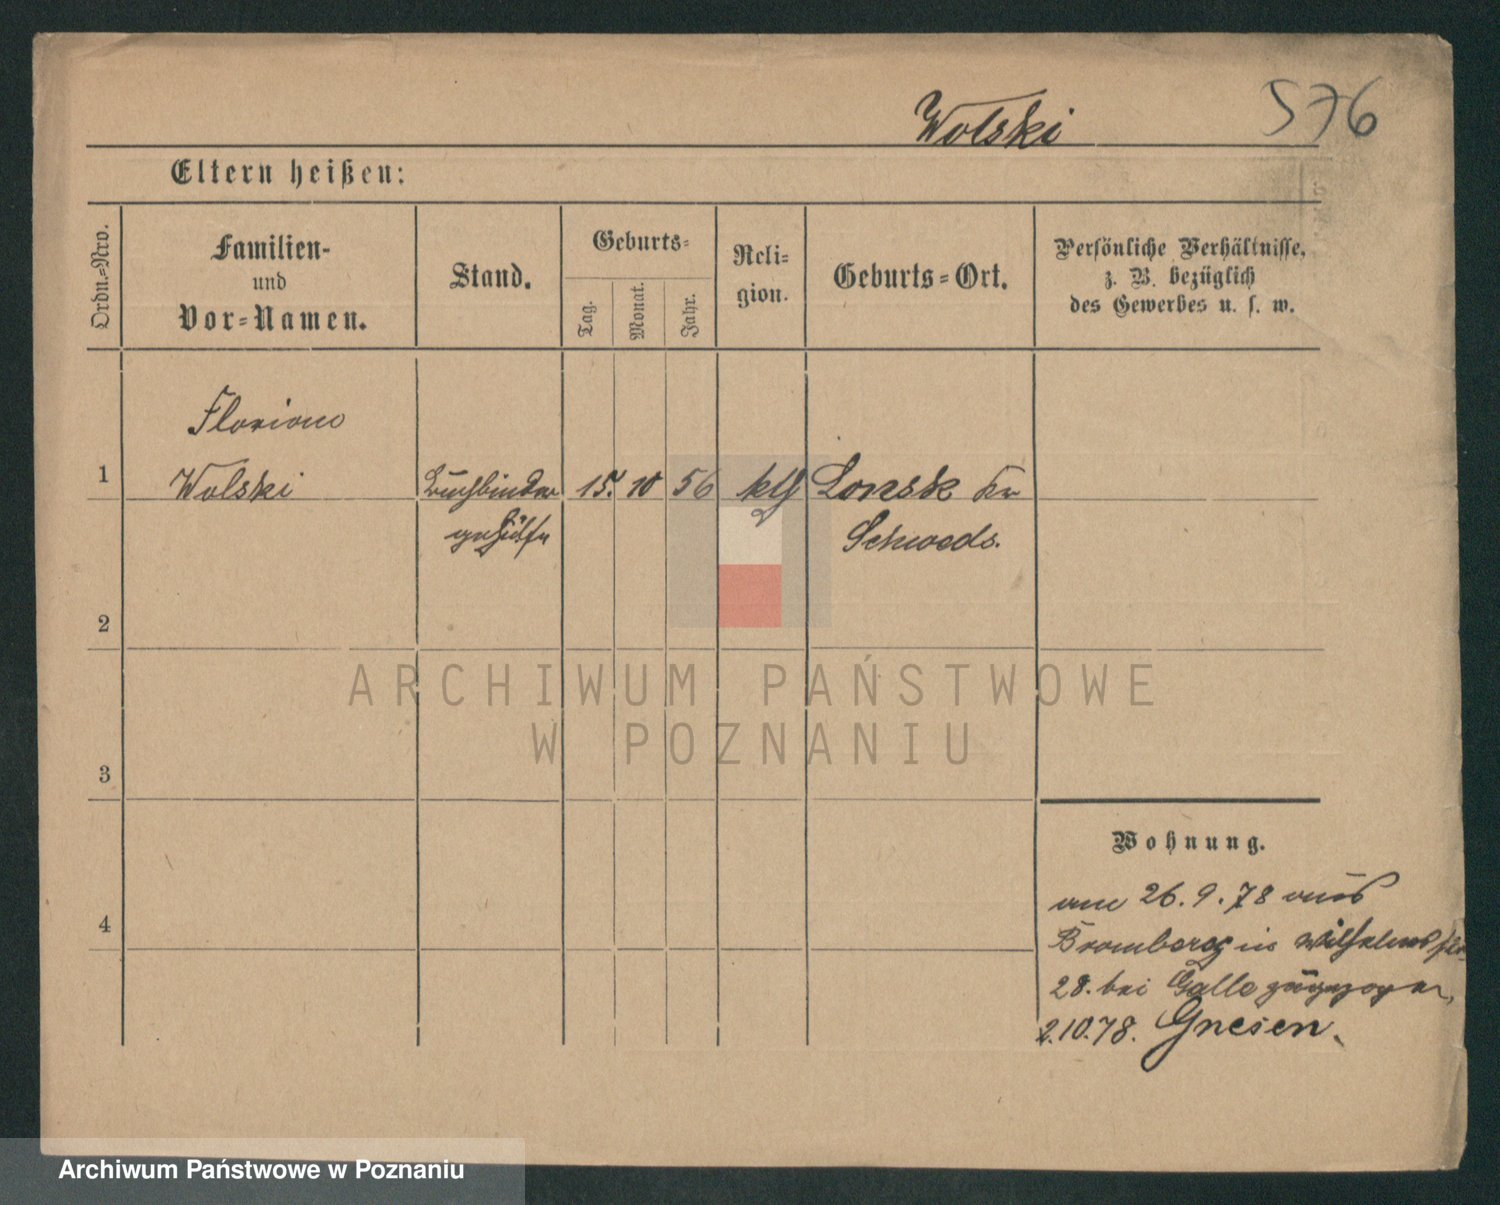 576
Wolski
Eltern heißen:
Ordn.=Nro.
Familien-
und
Vor=Namen.
Stand.
Geburts=
Tag.
Monat.
Jahr.
Reli=
gion.
Geburts=Ort.
Persönliche Verhältnisse,
z. B. bezüglich
des Gewerbes u. s. w.
Florian
1 Wolski Buchbinder 15. 10 56 kth Lonsk Kr
gehülfe Schwedt.
2
3
4
Wohnung.
am 26.9.78 aus
Bromberg in Wilhelmsstr
28. bei Galle zugezogen,
2.10.78. Gnesen.
ARCHIWUM PAŃSTWOWE
W POZNANIU
Archiwum Państwowe w Poznaniu